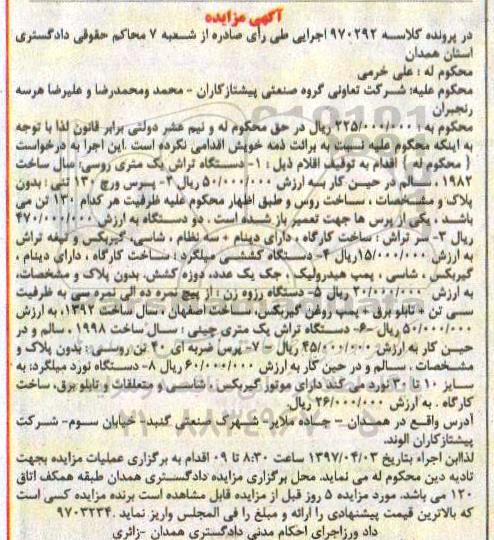 آگهی مزایده
در پرونده کلاسه ۹۷۰۲۹۲ اجرایی طی رای صادره از شعبه ۷ محاکم حقوقی دادگستری
استان همدان
محکوم له : علی خرمی
محکوم علیه: شرکت تعاونی گروه صنعتی پیشتازکاران - محمد ومحمدرضا و علیرضا هرسه
رنجبران
محکوم به : ۲۲۵/۰۰۰/۰۰۰ ریال در حق محکوم له و نیم عشر دولتی برابر قانون لذا با توجه
به اینکه محکوم علیه نسبت به برائت ذمه خویش اقدامی نکرده است .این اجرا به درخواست
{ محکوم له } اقدام به توقیف اقلام ذیل : ۱- دستگاه تراش یک متری روسی: سال ساخت
۱۹۸۲ ، سالم در حین کار به ارزش ۵۰/۰۰۰/۰۰۰ ریال ۲- پرس ورچ ۱۳۰ تنی : بدون
پلاک و مشخصات ، ساخت روس و طبق اظهار محکوم علیه ظرفیت هر کدام ۱۳۰ تن می
باشد ، یکی از پرس ها جهت تعمیر باز شده است . دو دستگاه به ارزش ۴۷۰/۰۰۰/۰۰۰
ریال ۳- سر تراش : ساخت کارگاه ، دارای دینام + سه نظام ، شاسی، گیربکس و تیغه تراش
به ارزش ۱۵/۰۰۰/۰۰۰ریال ۴- دستگاه کششی میلگرد : ساخت کارگاه ، دارای دینام ،
گیربکس ، شاسی ، پمپ هیدرولیک ، جک یک عدد، دوزه کشش بدون پلاک و مشخصات،
به ارزش ۲۰/۰۰۰/۰۰۰ ریال ۵- دستگاه رزوه زن : از پیچ نمره ده الی نمره سی به ظرفیت
سی تن + تابلو برق + پمپ روغن گیربکس، ساخت اصفهان ، سال ساخت ۱۳۹۲، به ارزش
۵۰/۰۰۰/۰۰۰ ریال ۶- دستگاه تراش یک متری چینی : سال ساخت ۱۹۹۸ ، سالم و در
حین کار به ارزش ۴۵/۰۰۰/۰۰۰ ریال ۷- پرس ضربه ای ۴۰ تن روسی : بدون پلاک و
مشخصات . سالم و در حین کار به ارزش ۶۰/۰۰۰/۰۰۰ ریال ۸- دستگاه نورد میلگرد: به
سایز ۱۰ تا ۳۰ نورد می کند دارای موتور گیربکس ، شاسی و متعلقات و تابلو برق، ساخت
کارگاه . به ارزش ۲۶/۰۰۰/۰۰۰ ریال
آدرس واقع در همدان - جاده ملایر- شهرک صنعتی گنبد- خیابان سوم- شرکت
پیشتازکاران الوند.
لذااین اجراء بتاریخ ۱۳۹۷/۰۴/۰۳ ساعت ۸:۳۰ تا ۰۹ اقدام به برگزاری عملیات مزایده بجهت
تادیه دین محکوم له می نماید. محل برگزاری مزایده دادگستری همدان طبقه همکف اتاق
۱۲۰ می باشد. مورد مزایده ۵ روز قبل از مزایده قابل مشاهده است برنده مزایده کسی است
که بالاترین قیمت پیشنهادی را ارائه و مبلغ را فی المجلس واریز نماید .۹۷۰۳۲۳۴
داد ورزاجرای احکام مدنی دادگستری همدان -زائری